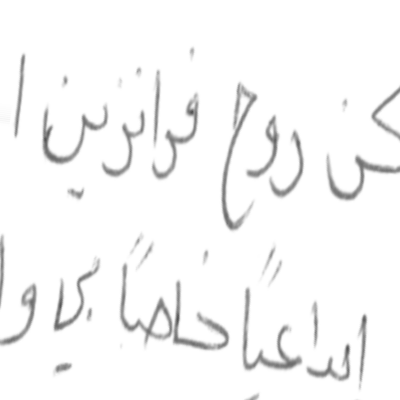 كن روح فرانزين ا
ابداعيًا خاصًا بي وا